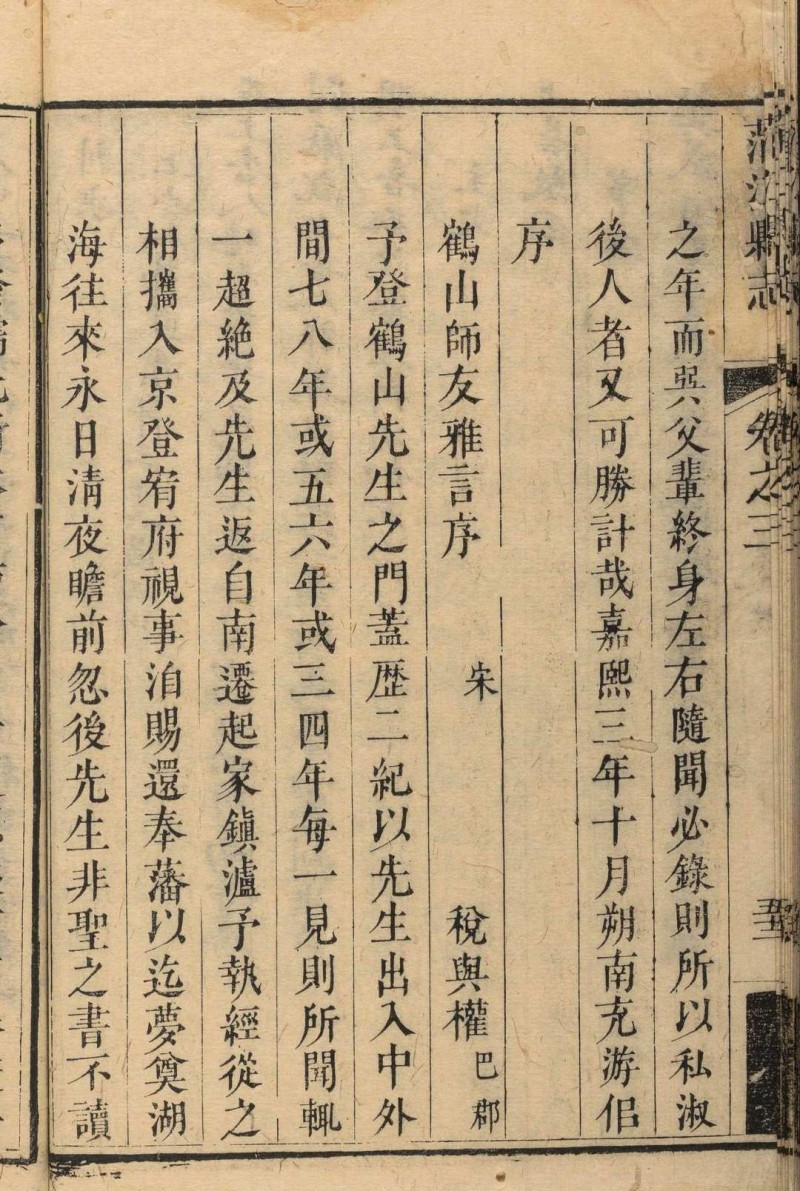 蒲江縣志 卷之三
之年而巽父輩終身左右隨聞必錄則所以私淑
後人者又可勝計哉嘉熙三年十月朔南充游侣
序
鶴山師友雅言序 宋 稅與權 巴郡
予登鶴山先生之門蓋歴二紀以先生出入中外
間七八年或五六年或三四年每一見則所聞輒
一超絶及先生返自南遷起家鎮瀘予執經從之
相攜入京登宥府視事洎賜還奉藩以迄夢奠湖
海往來永日清夜瞻前忽後先生非聖之書不讀